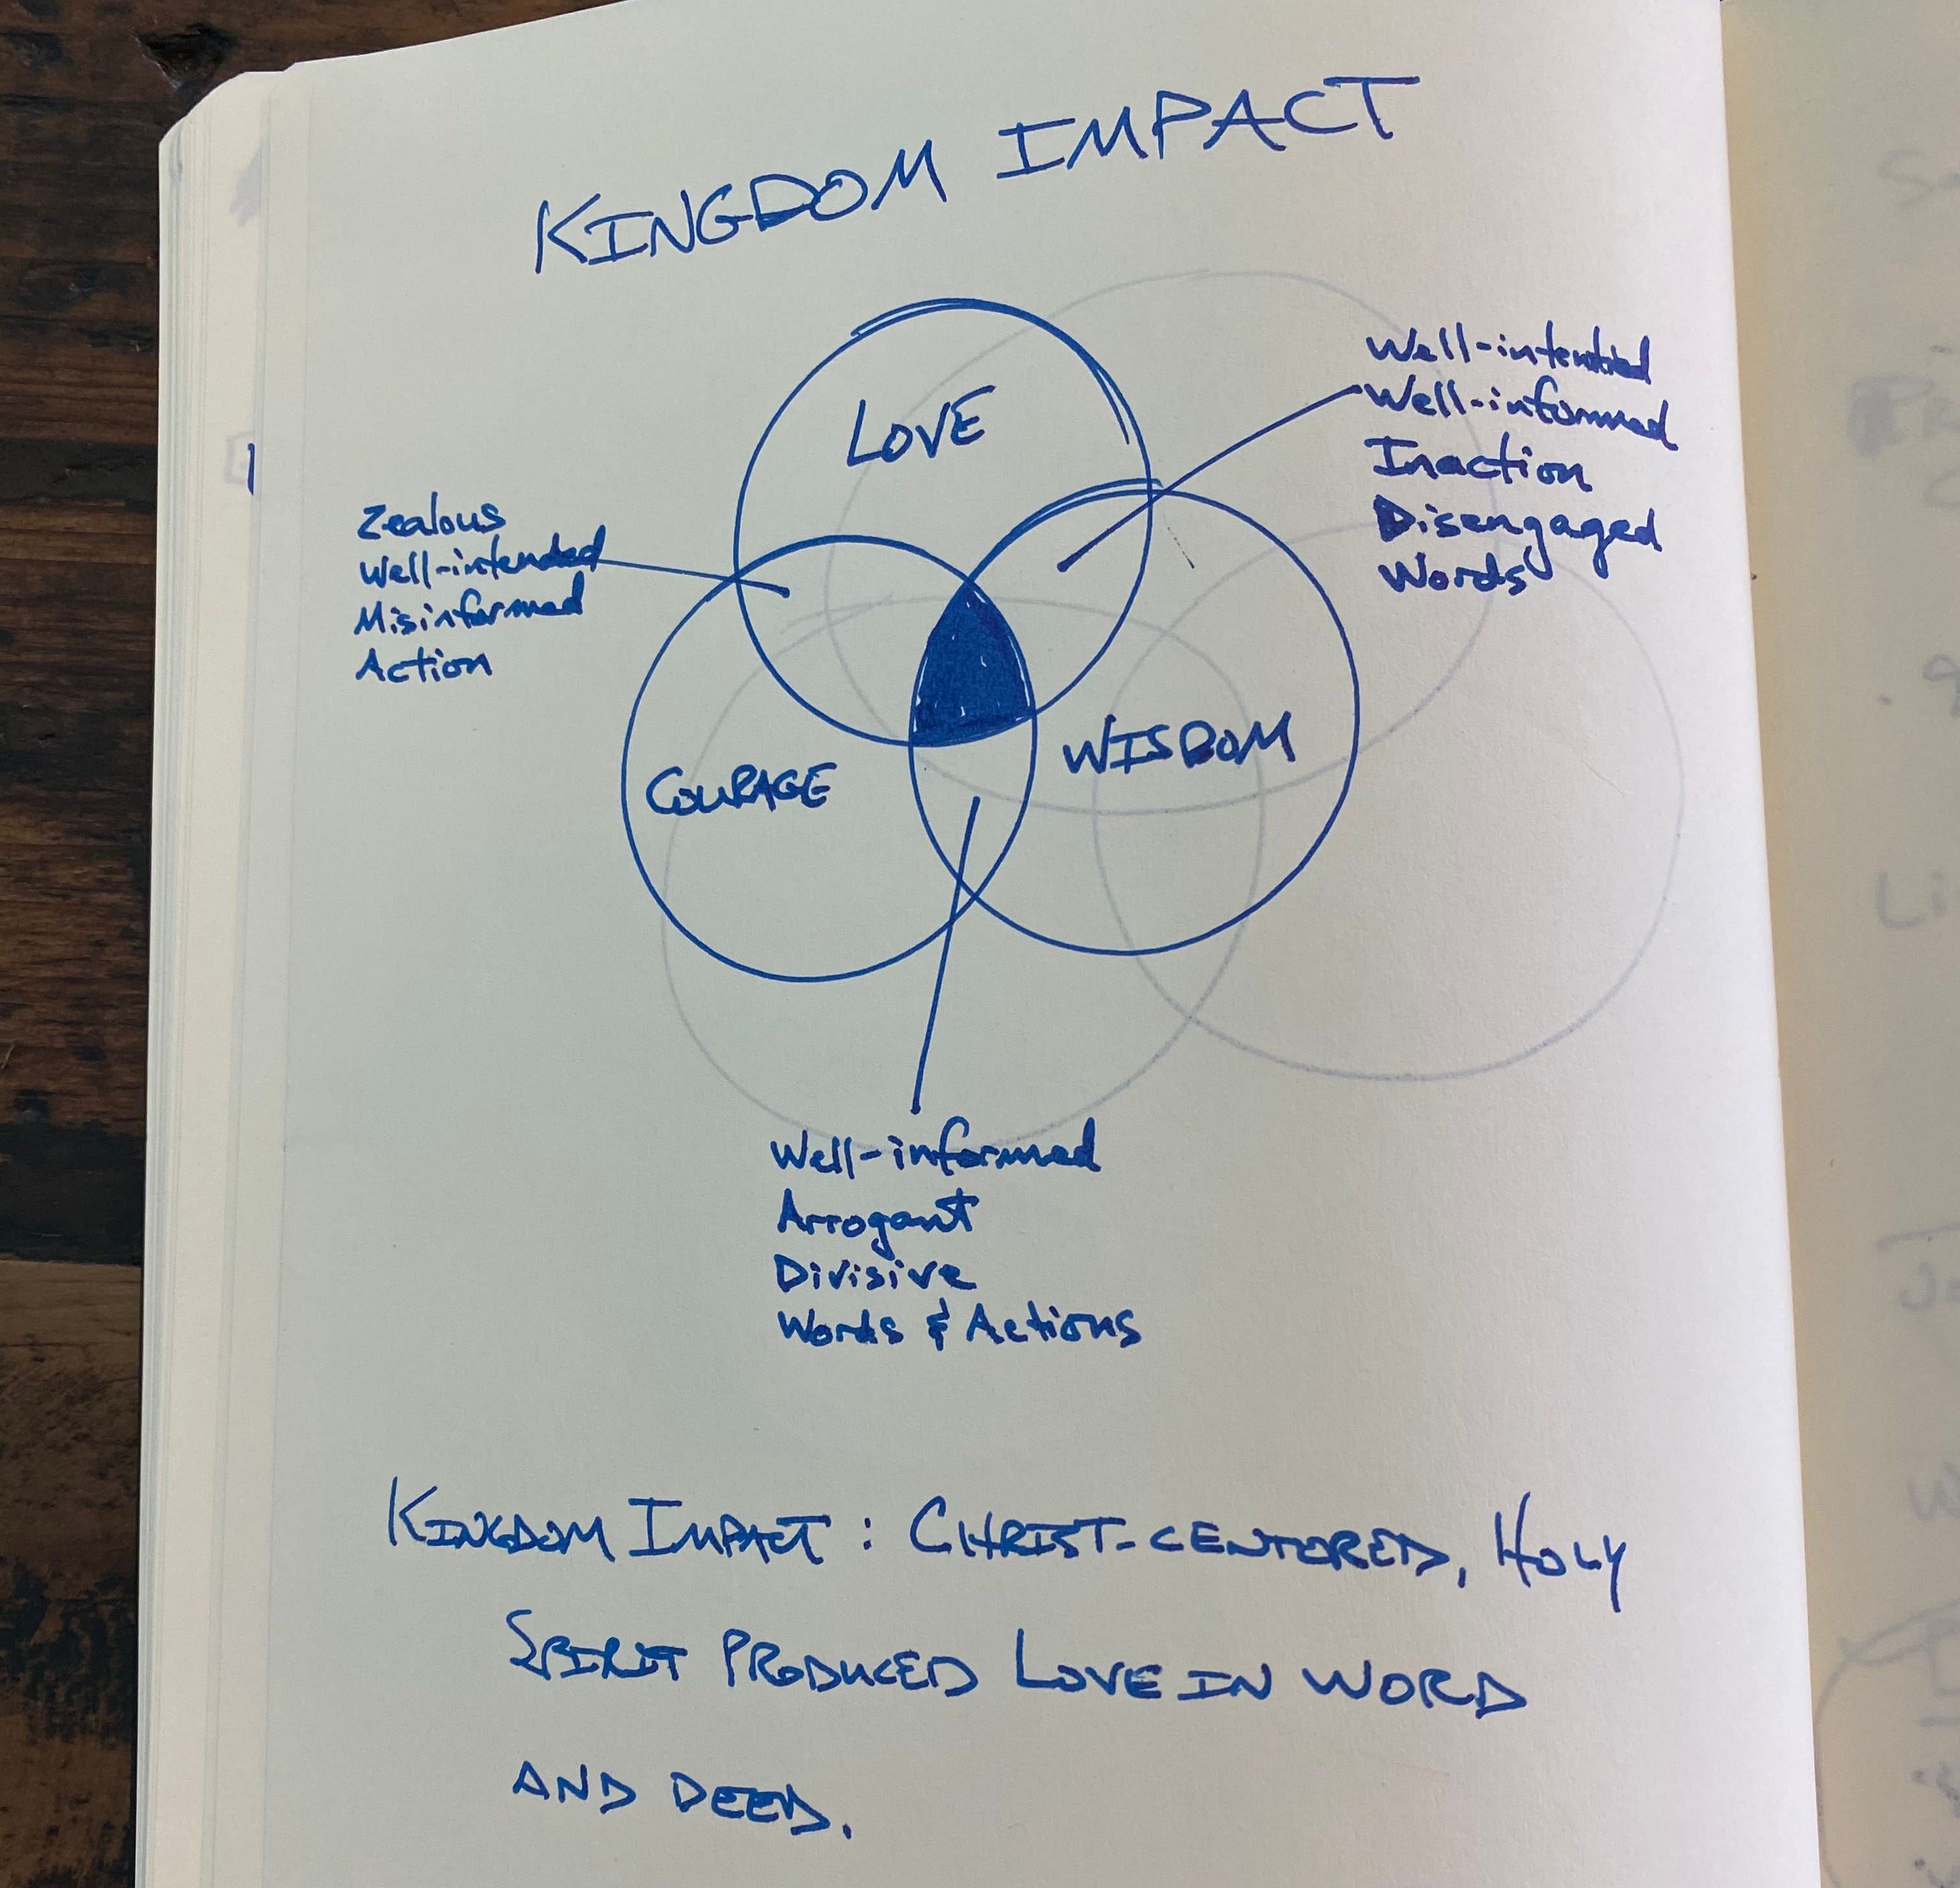 KINGDOM IMPACT
LOVE
Well-intentied
Well-informed
Inaction
Disengaged
Words
Zealous
Well-intended
Misinformed
Action
COURAGE
WISDOM
Well-informed
Arrogant
Divisive
Words & Actions
KINGDOM IMPACT: CHRIST-CENTORED, HOLY
SPIRIT PRODUCED LOVE IN WORD
AND DEED.